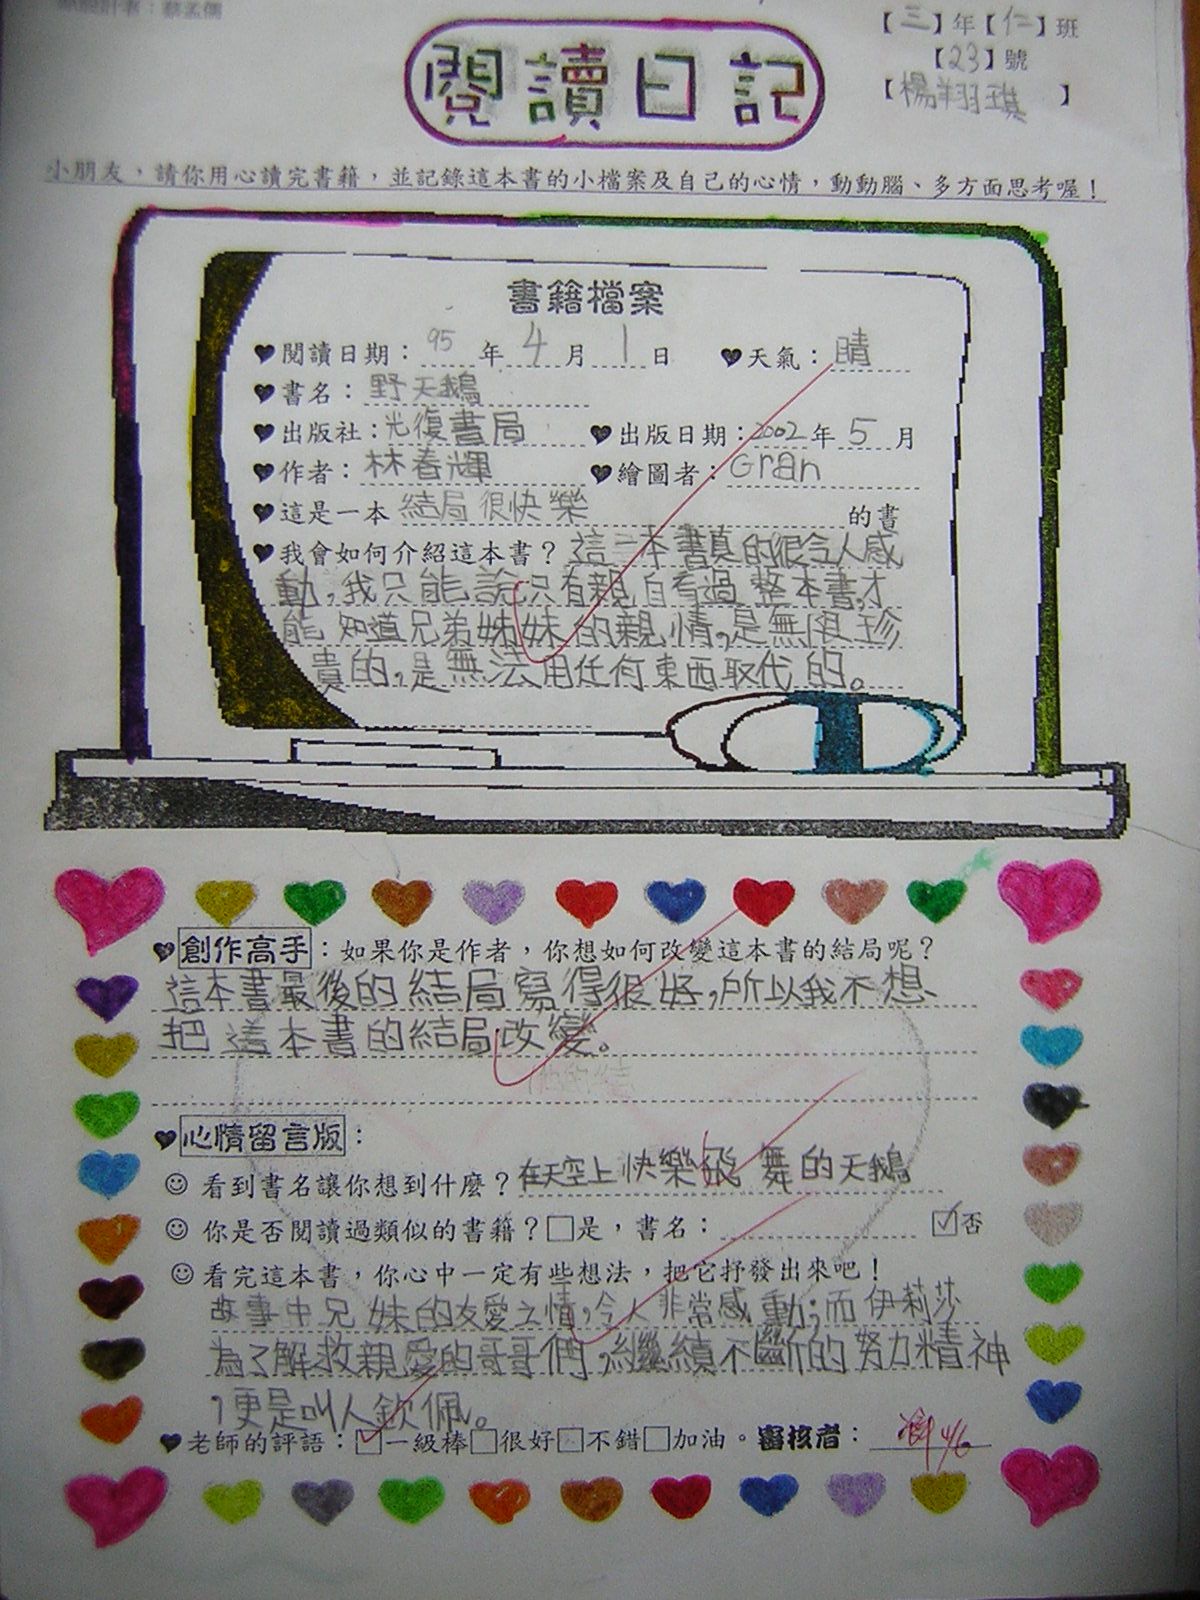 【三】年【仁】班
【23】號
【楊翔琪】
閱讀日記
小朋友，請你用心讀完書籍，並記錄這本書的小檔案及自己的心情，動動腦、多方面思考喔！
書籍檔案
閱讀日期：95年4月1日 天氣：晴
書名：野天鵝
出版社：光復書局 出版日期：2002年5月
作者：林春輝 繪圖者：Gran
這是一本 結局很快樂 的書
我會如何介紹這本書？這一本書真的很令人感
動，我只能說只有親自看過整本書，才
能知道兄弟姊妹的親情，是無限珍
貴的，是無法用任何東西取代的。
創作高手：如果你是作者，你想如何改變這本書的結局呢？
這本書最後的結局寫得很好，所以我不想
把這本書的結局改變。
心情留言版：
看到書名讓你想到什麼？在天空上快樂飛舞的天鵝
你是否閱讀過類似的書籍？□是，書名： ☑否
看完這本書，你心中一定有些想法，把它抒發出來吧！
故事中兄妹的友愛之情，令人非常感動；而伊莉莎
為了解救親愛的哥哥們，繼續不斷的努力精神
，更是叫人欽佩。
老師的評語：☑一級棒□很好□不錯□加油。審核者： 4/6